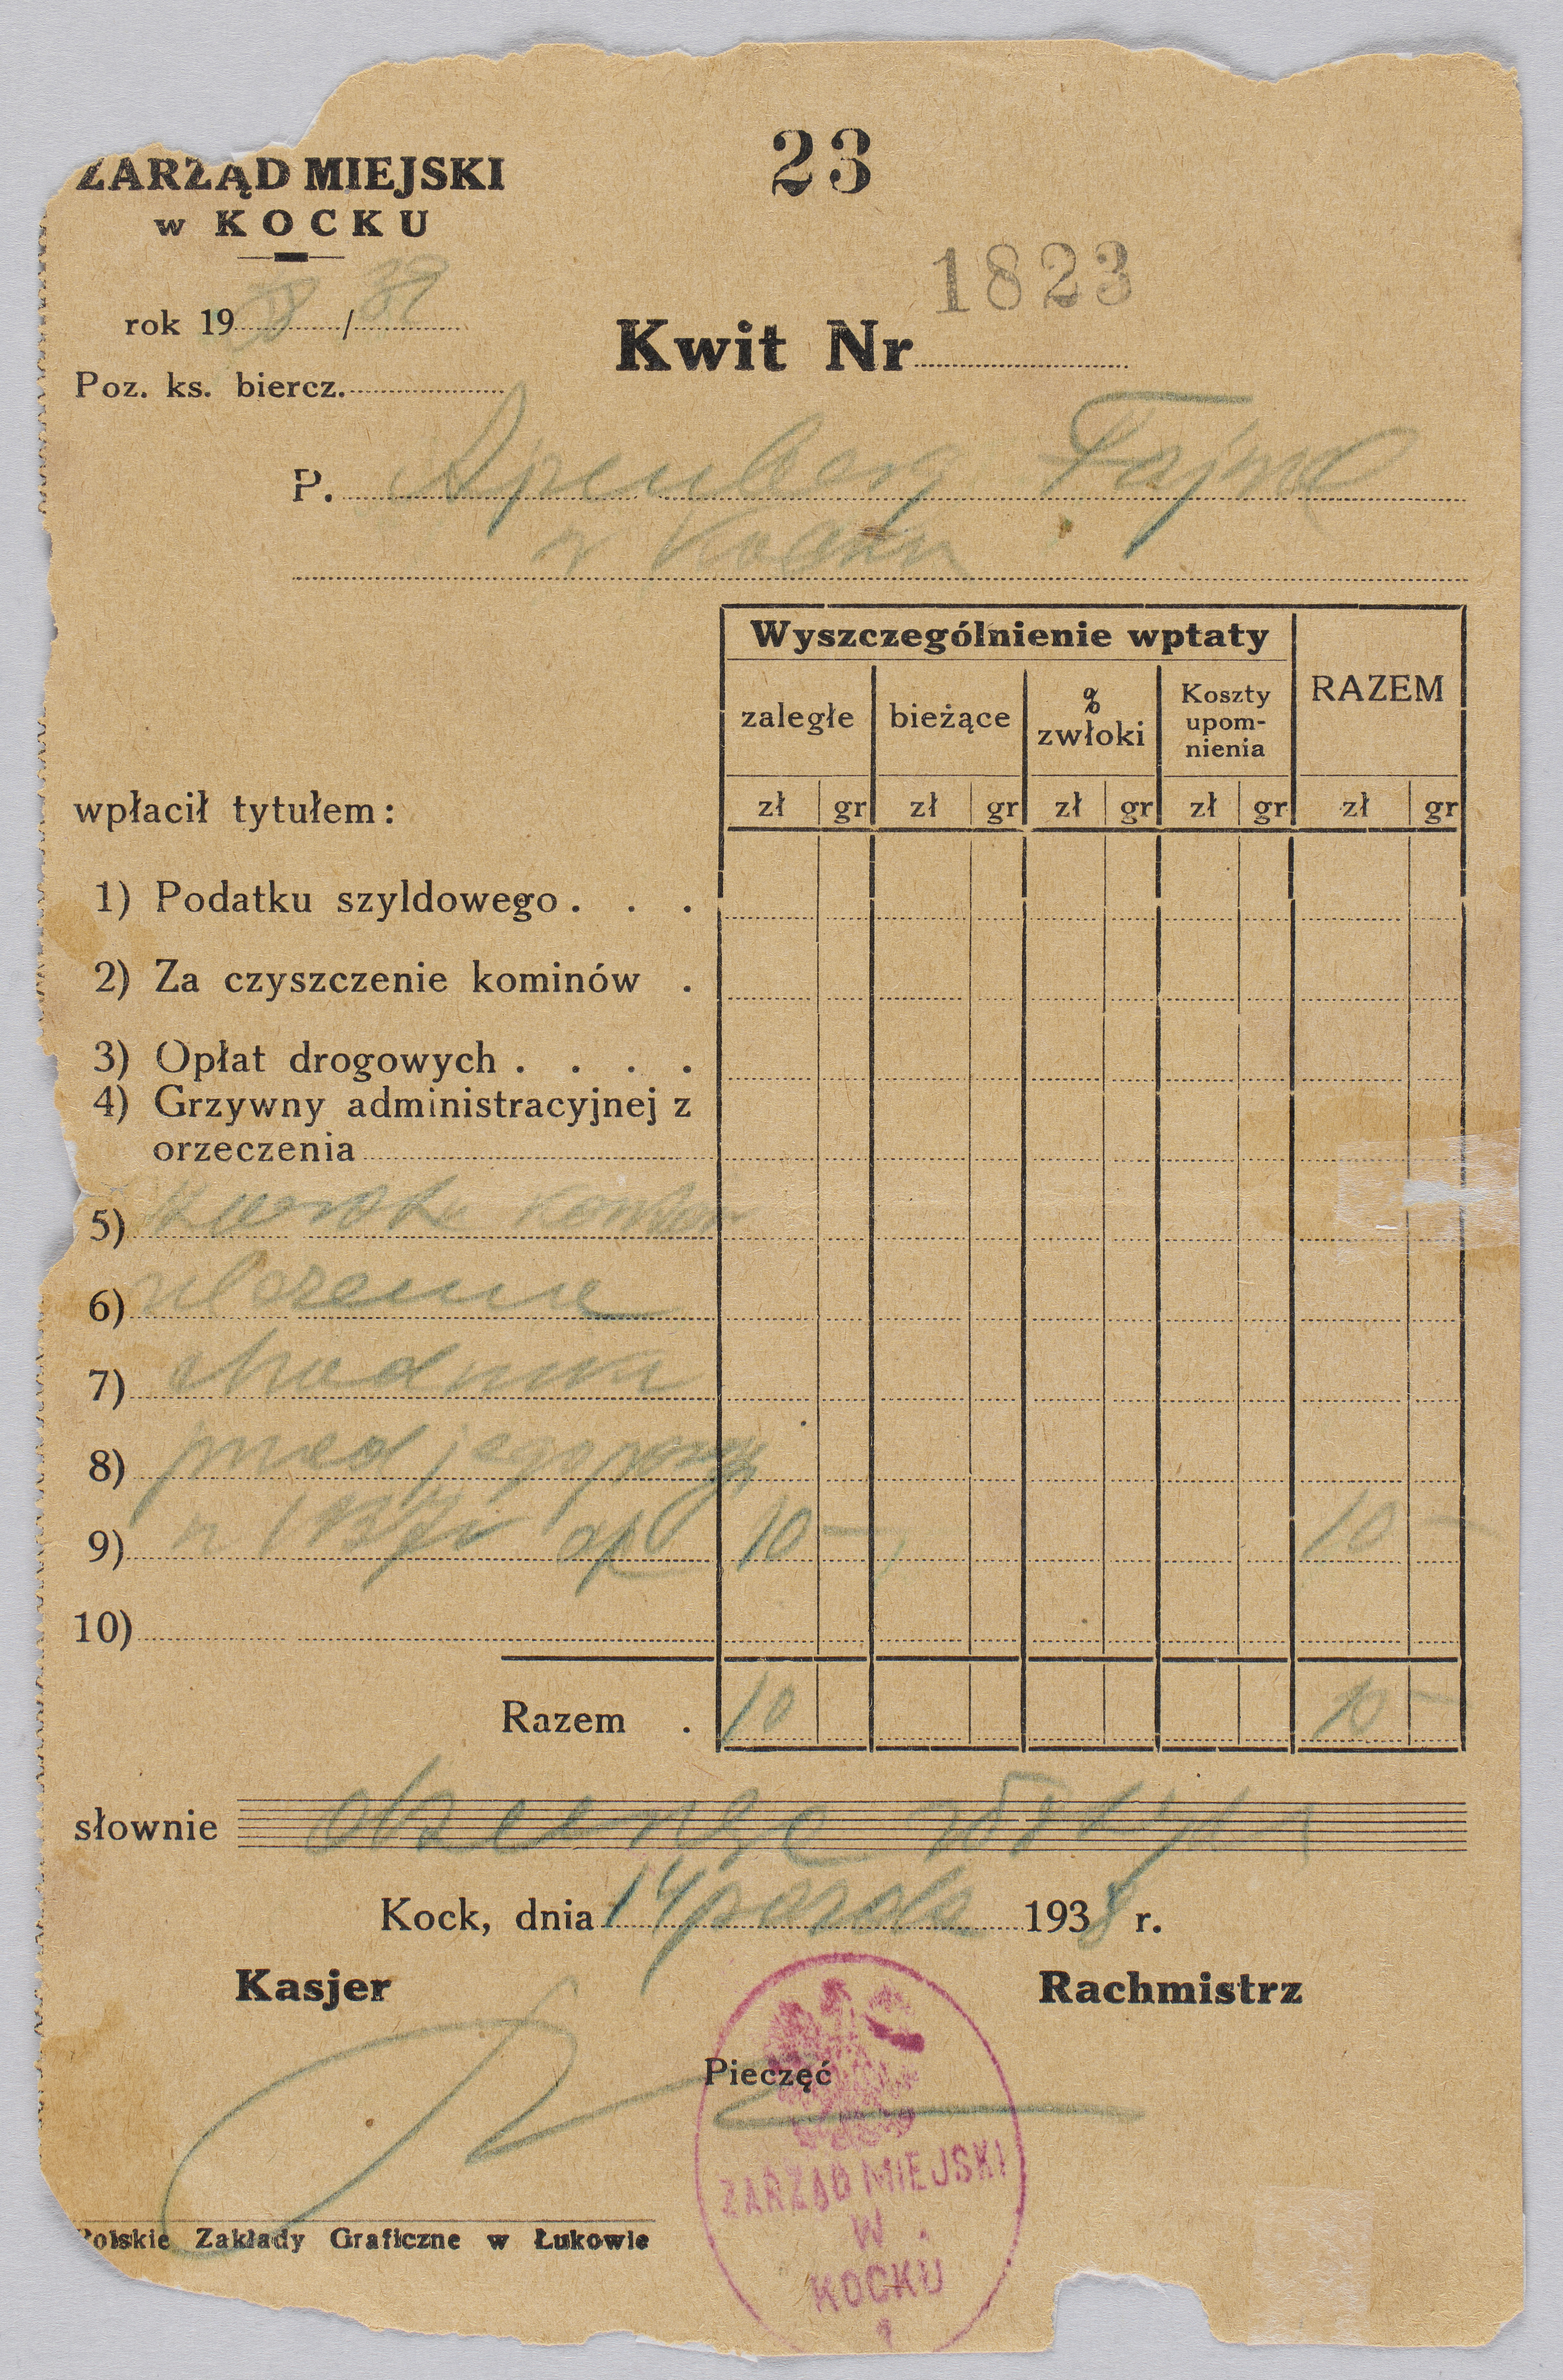 ZARZĄD MIEJSKI
w KOCKU
23
1823
rok 1938/39
Kwit Nr
Poz. ks. biercz.
P. Apenberg Fajwel
w Kocku
Wyszczególnienie wptaty
RAZEM
zaległe bieżące % zwłoki Koszty upom-nienia
wpłacił tytułem:
zł gr zł gr zł gr zł gr zł gr
1) Podatku szyldowego . . .
2) Za czyszczenie kominów .
3) Opłat drogowych . . . .
4) Grzywny administracyjnej z
orzeczenia
5)
6) ułożenie
7) chodnika
8) przed jego
9) 10 — 10 —
10)
Razem . 10 10 —
słownie złotych
Kock, dnia 14 paźdz 1938 r.
Kasjer
Rachmistrz
Pieczęć
ZARZĄD MIEJSKI
W
KOCKU
1
Polskie Zakłady Graficzne w Łukowie